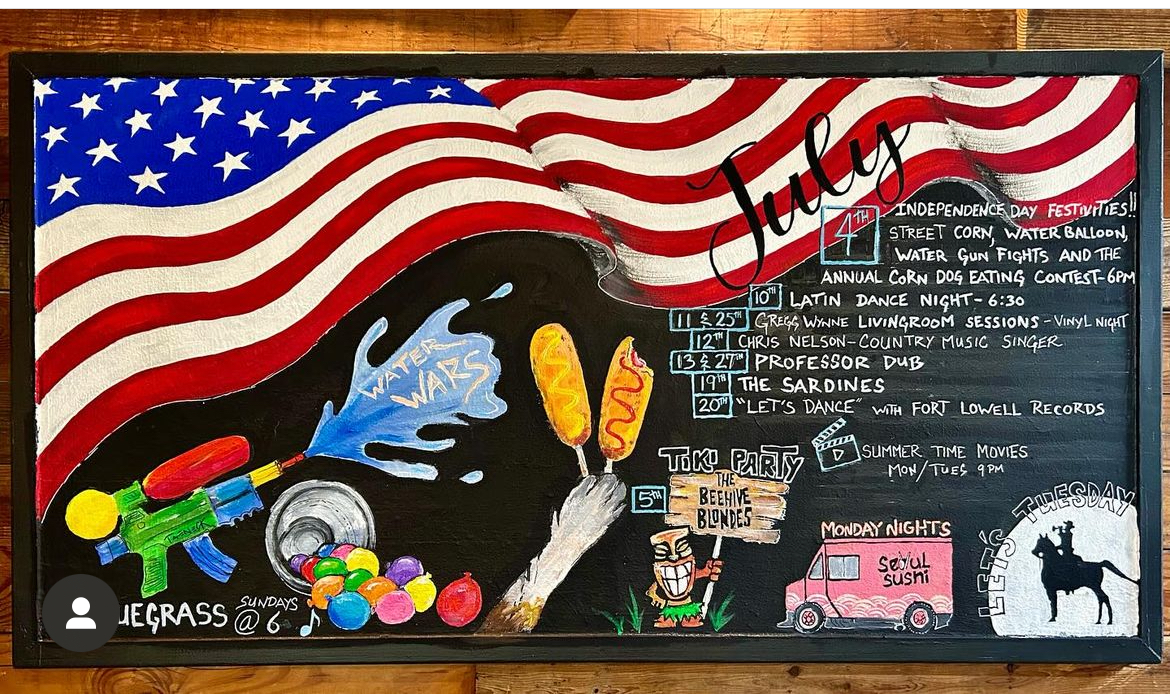 July
4TH
INDEPENDENCE DAY FESTIVITIES!!
STREET CORN, WATER BALLOON,
WATER GUN FIGHTS AND THE
ANNUAL CORN DOG EATING CONTEST-6PM
10TH LATIN DANCE NIGHT-6:30
11 & 25TH GREGG WYNNE LIVINGROOM SESSIONS-VINYL NIGHT
12TH CHRIS NELSON-COUNTRY MUSIC SINGER
13 & 27TH PROFESSOR DUB
19TH THE SARDINES
20TH "LET'S DANCE" WITH FORT LOWELL RECORDS
SUMMER TIME MOVIES
MON/TUES 9PM
WATER
WARS
TIKI PARTY
5TH
THE
BEEHIVE
BLONDES
MONDAY NIGHTS
SEOUL
SUSHI
LET'S TUESDAY
UEGRASS @ SUNDAYS
6